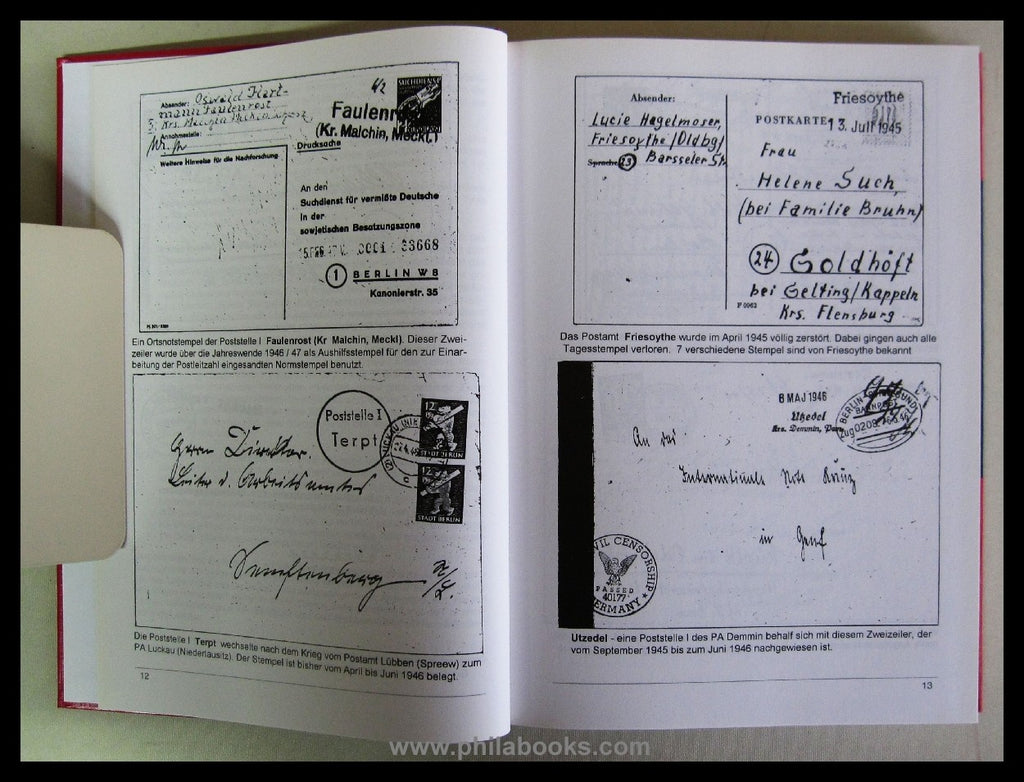 Absender: Oswald Hart-
mann Faulenrost
Annahmestelle:
Weitere Hinweise für die Nachforschung
SUCHDIENST
Faulenrost
(Kr. Malchin, Meckl)
Drucksache
An den
Suchdienst für vermißte Deutsche
in der
sowjetischen Besatzungszone
33668
1 BERLIN W 8
Kanonierstr. 35
Ein Ortsnotstempel der Poststelle I Faulenrost (Kr Malchin, Meckl). Dieser Zwei-
zeiler wurde über die Jahreswende 1946 / 47 als Aushilfsstempel für den zur Einar-
beitung der Postleitzahl eingesandten Normstempel benutzt.
Poststelle I
Terpt
12
STADT BERLIN
12
STADT BERLIN
Herrn Direktor.
Leiter d. Arbeitsamtes
Senftenberg
N/L.
Die Poststelle I Terpt wechselte nach dem Krieg vom Postamt Lübben (Spreew) zum
PA Luckau (Niederlausitz). Der Stempel ist bisher vom April bis Juni 1946 belegt.
12
Absender:
Lucie Hagelmoser,
Friesoythe/Oldbg/
23 Barsseler Str
Friesoythe
POSTKARTE 13. Juli 1945
Frau
Helene Such,
(bei Familie Bruhn)
24 Goldhöft
bei Gelting/Kappeln
Krs. Flensburg
F 0963
Das Postamt Friesoythe wurde im April 1945 völlig zerstört. Dabei gingen auch alle
Tagesstempel verloren. 7 verschiedene Stempel sind von Friesoythe bekannt
8 MAJ 1946
Utzedel
Krs. Demmin,
BAHNPOST
An das
Internationale Rote Kreuz
in Genf
CIVIL CENSORSHIP
PASSED
40177
GERMANY
Utzedel - eine Poststelle I des PA Demmin behalf sich mit diesem Zweizeiler, der
vom September 1945 bis zum Juni 1946 nachgewiesen ist.
13
www.philabooks.com